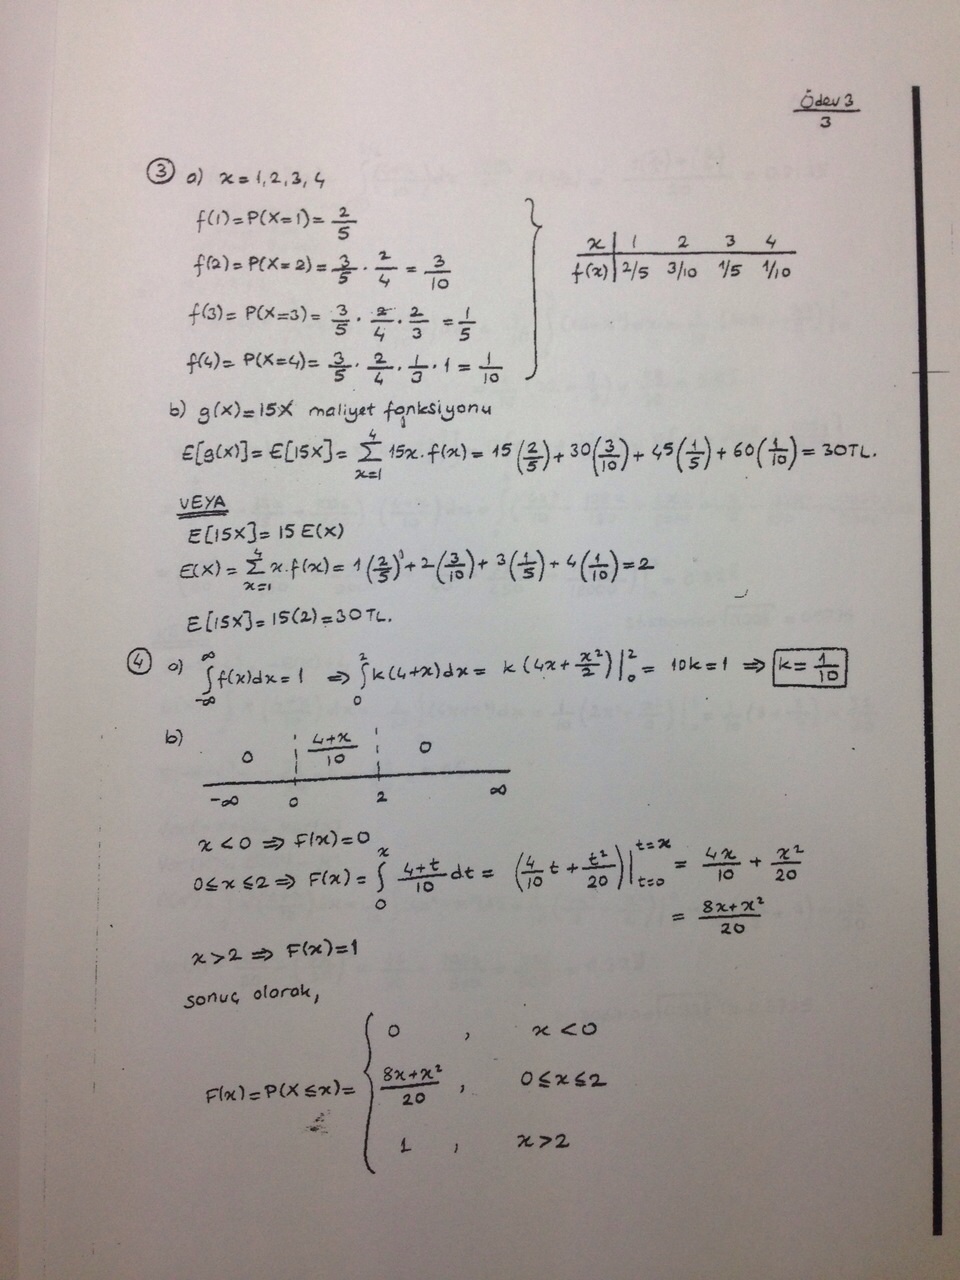 Ödev 3
3
③ a) x = 1, 2, 3, 4
f(1) = P(X=1) = 2/5
f(2) = P(X=2) = 3/5 · 2/4 = 3/10
f(3) = P(X=3) = 3/5 · 2/4 · 2/3 = 1/5
f(4) = P(X=4) = 3/5 · 2/4 · 1/3 · 1 = 1/10
x | 1 2 3 4
f(x) | 2/5 3/10 1/5 1/10
b) g(x) = 15X maliyet fonksiyonu
E[g(x)] = E[15X] = ∑_{x=1}^{4} 15x · f(x) = 15(2/5) + 30(3/10) + 45(1/5) + 60(1/10) = 30TL.
VEYA
E[15X] = 15 E(X)
E(X) = ∑_{x=1}^{4} x · f(x) = 1(2/5) + 2(3/10) + 3(1/5) + 4(1/10) = 2
E[15X] = 15(2) = 30TL.
④ a) ∫_{-∞}^{∞} f(x)dx = 1 ⇒ ∫_{0}^{2} k(4+x)dx = k(4x + x²/2)|_{0}^{2} = 10k = 1 ⇒ k = 1/10
b)
0 (4+x)/10 0
-∞ 0 2 ∞
x < 0 ⇒ F(x) = 0
0 ≤ x ≤ 2 ⇒ F(x) = ∫_{0}^{x} (4+t)/10 dt = (4/10 t + t²/20)|_{t=0}^{t=x} = 4x/10 + x²/20
= (8x+x²)/20
x > 2 ⇒ F(x) = 1
sonuç olarak,
0 , x < 0
F(x) = P(X ≤ x) = { (8x+x²)/20 , 0 ≤ x ≤ 2
1 , x > 2